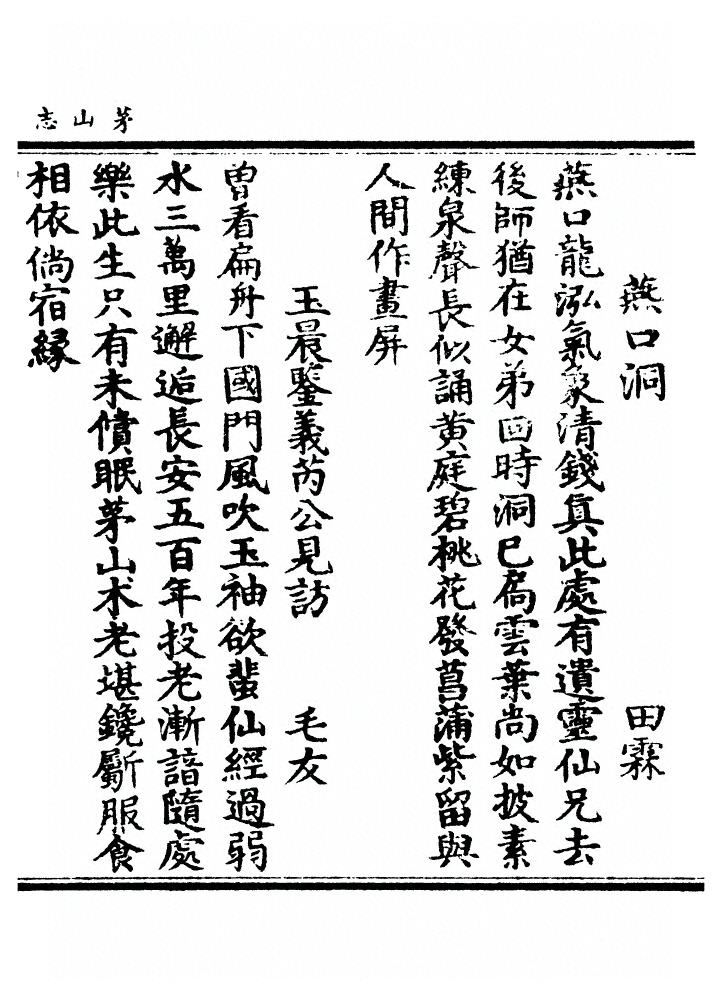 茅山志
燕口洞 田霖
燕口龍泓氣象清錢眞此處有遺靈仙兄去
後師猶在女弟囬時洞已扃雲葉尚如披素
練泉聲長似誦黄庭碧桃花發菖蒲紫留與
人間作畫屏
玉晨鑒義芮公見訪 毛友
曽看扁舟下國門風吹玉袖欲蜚仙經過弱
水三萬里邂逅長安五百年投老漸諳隨處
樂此生只有未償眠茅山术老堪鑱斸服食
相依倘宿縁